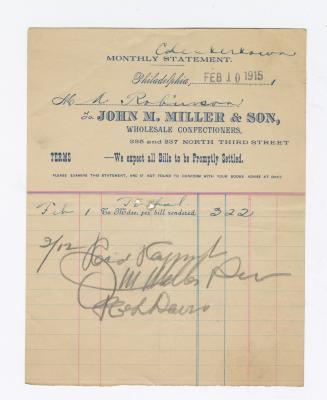 MONTHLY STATEMENT.
Philadelphia, FEB 10 1915
M A Robinson
To JOHN M. MILLER & SON,
WHOLESALE CONFECTIONERS,
235 and 237 NORTH THIRD STREET
TERMS —We expect all Bills to be Promptly Settled.
PLEASE EXAMINE THIS STATEMENT, AND IF NOT FOUND TO CONFORM WITH YOUR BOOKS ADVISE AT ONCE
Feb 1 To Mdse, per bill rendered, 3 22
2/12
J M Miller Son